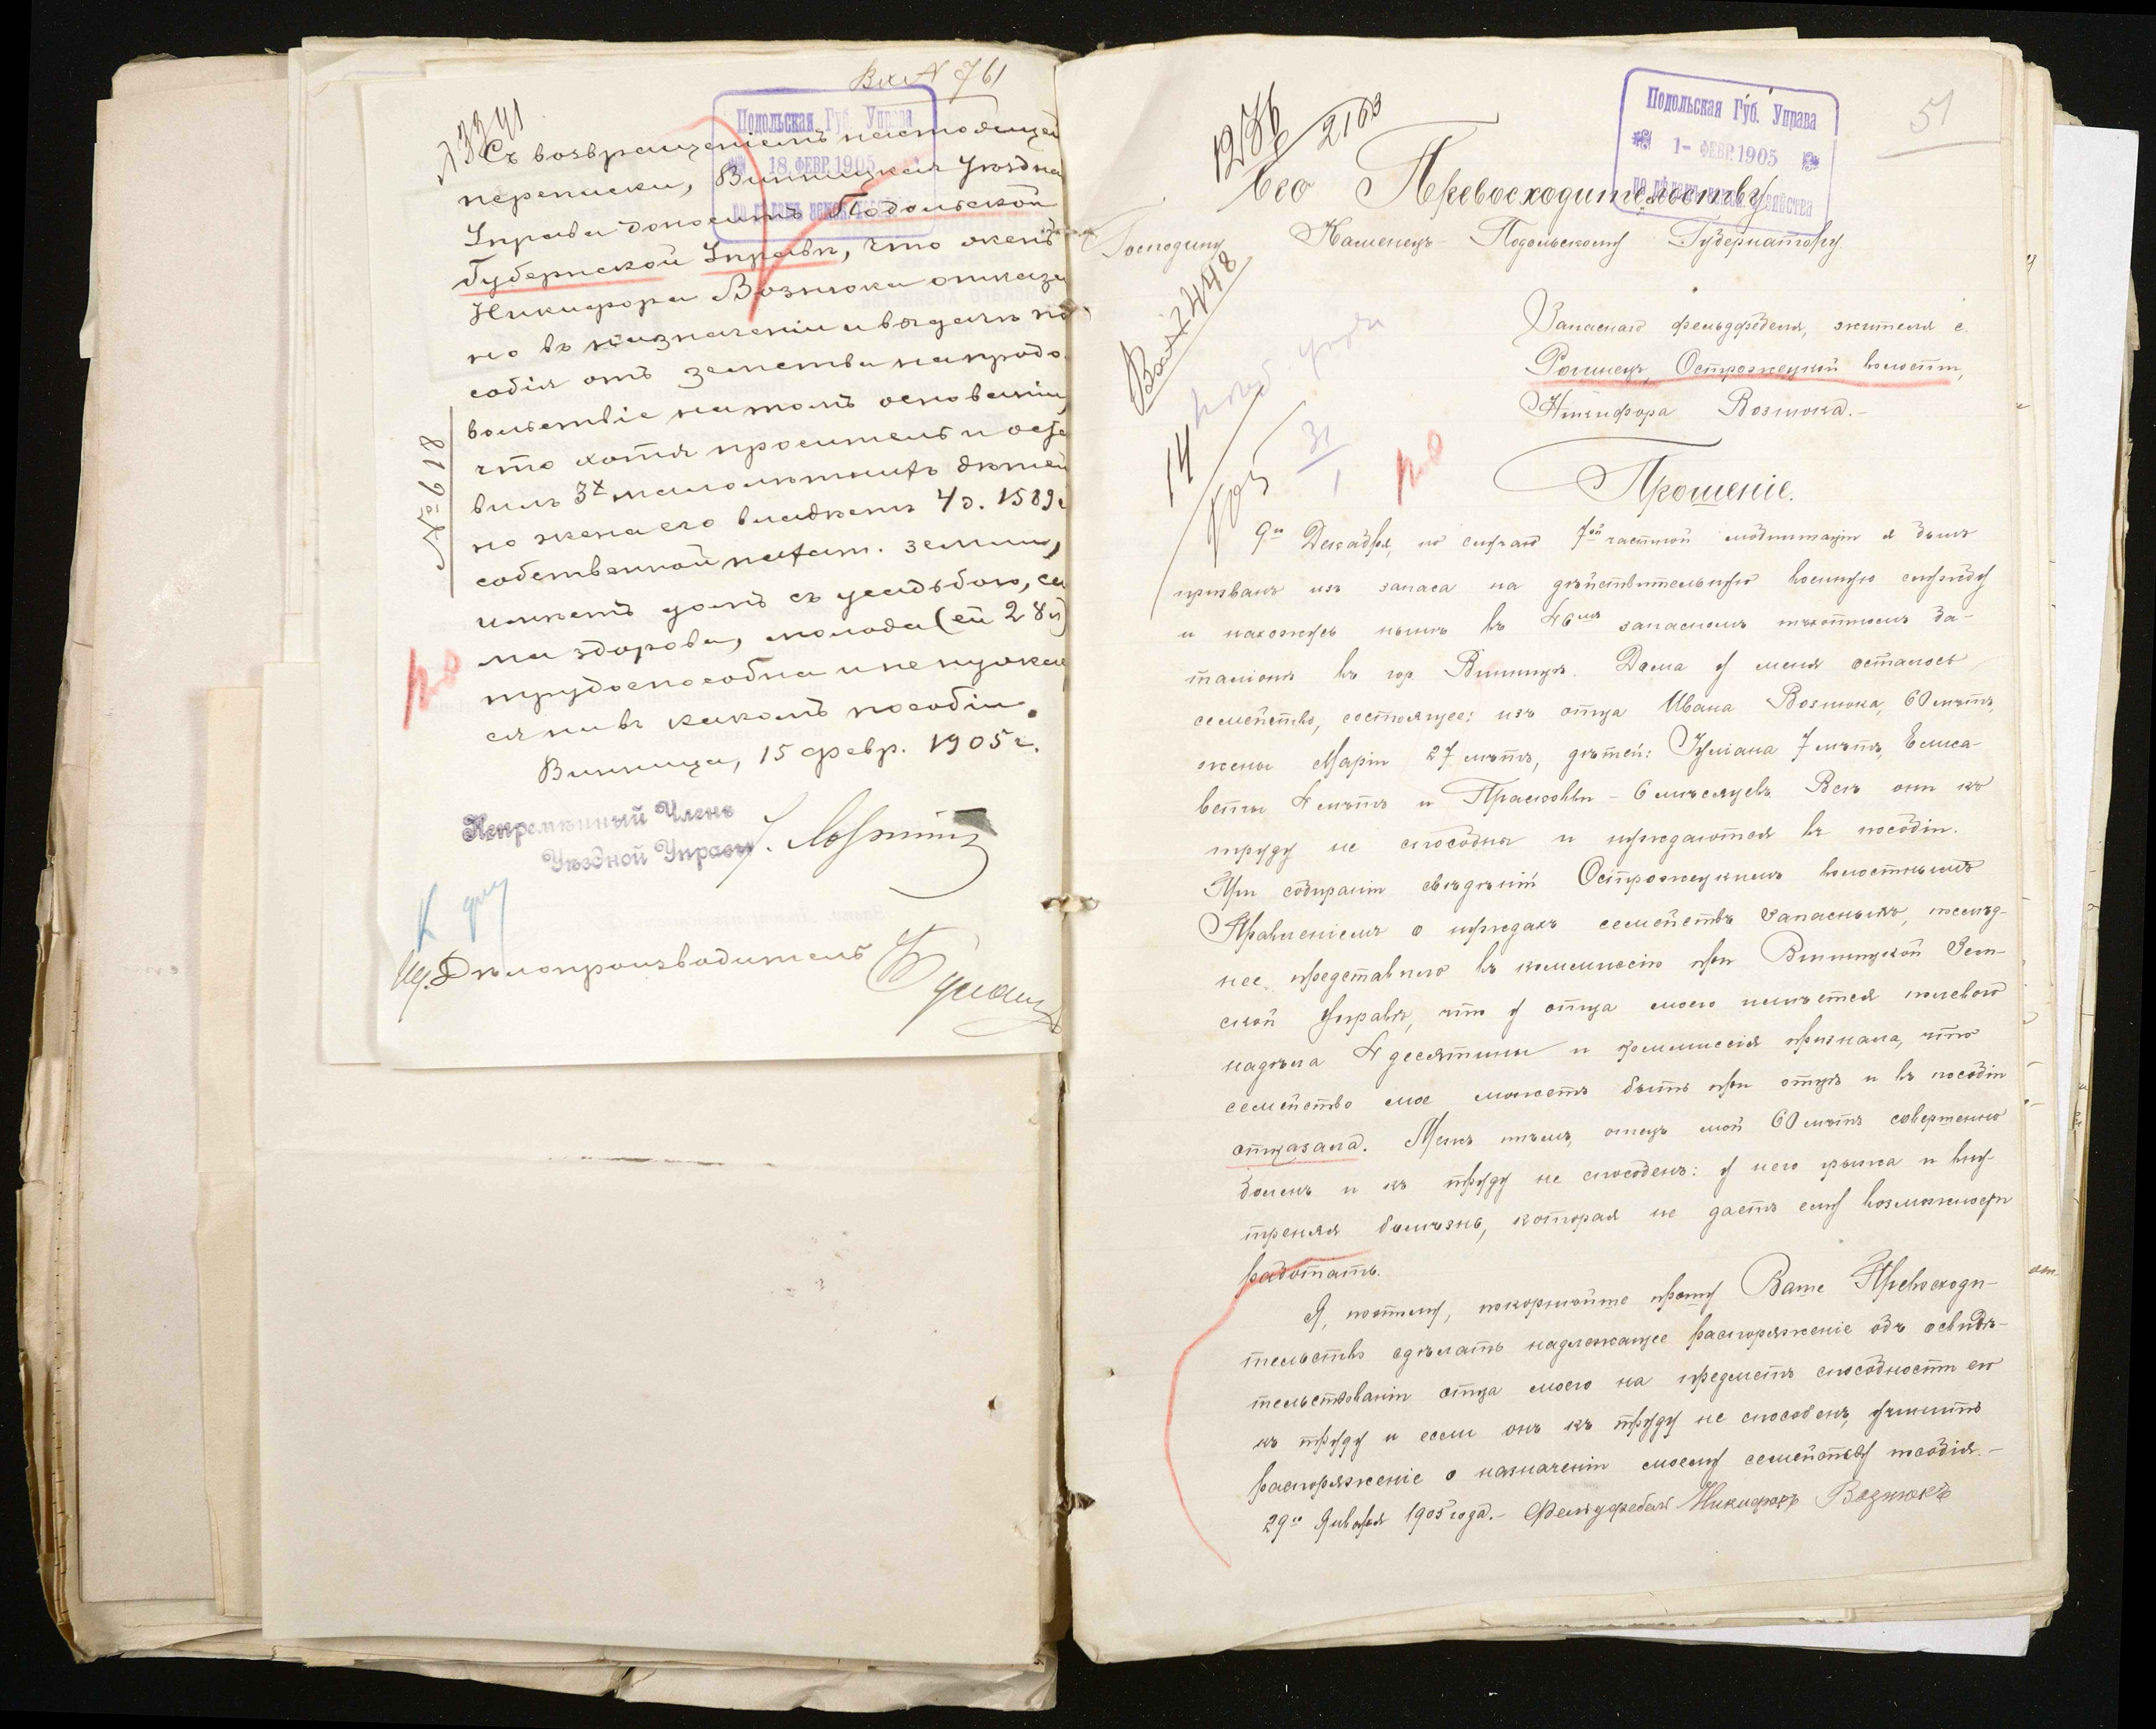 Вх. N 761
Подольская Губ. Управа
18. ФЕВР. 1905
Съ возвращеніемъ настоящей
переписки, Винницкая Уѣздна
Управа доноситъ Подольской
Губернской Управѣ, что
Никифора Вознюка отказа
но въ назначеніи и выдачѣ по
собія отъ земства на продо
вольствіе на томъ основаніи,
что хотя проситель и оста
вилъ 3х малолѣтнихъ дѣтей
но жена его владѣетъ 4 д. 1589
собственной пахат. земли,
имѣетъ домъ съ усадьбою, са
ма здорова, молода (ей 28 л)
трудоспособна и не нуждае
ся ни въ какомъ пособіи.
Винница, 15 февр. 1905 г.
Непремѣнный Членъ
Уѣздной Управы
К делу
Ид. Дѣлопроизводитель
№ 918
51
Подольская Губ. Управа
1- ФЕВР. 1905
2163
Его Превосходительству
Господину Каменецъ-Подольскому Губернатору.
Запаснаго фельдфебеля, жителя с.
Острожецкой волости,
Никифора Вознюка.-
Прошеніе.
9го Декабря, по случаю 7ой частной мобилизаціи я былъ
призванъ изъ запаса на дѣйствительную военную службу
и нахожусь нынѣ въ 46мъ запасномъ пѣхотномъ ба-
таліонѣ въ гор. Винницѣ. Дома у меня осталось
семейство, состоящее: изъ отца Ивана Вознюка, 60 лѣтъ,
жены Маріи 27 лѣтъ, дѣтей: Іуліана 7 лѣтъ, Елиса-
веты 4 лѣтъ и Прасковьи - 6 мѣсяцевъ. Всѣ они къ
труду не способны и нуждаются въ пособіи.
При собираніи свѣдѣній Острожецкимъ волостнымъ
Правленіемъ о нуждахъ семействъ запасныхъ, послѣд-
нее представило въ коммисію при Винницкой Зем-
ской Управѣ, что у отца моего имѣется полевого
надѣла 4 десятины и коммиссія признала, что
семейство мое можетъ быть при отцѣ и въ пособіи
отказала. Межъ тѣмъ, отецъ мой 60 лѣтъ совершенно
боленъ и къ труду не способенъ: у него грыжа и вну-
треняя болѣзнь, которая не даетъ ему возможности
работать.
Я, поэтому, покорнѣйше прошу Ваше Превосходи-
тельство сдѣлать надлежащее распоряженіе объ освидѣ-
тельствованіи отца моего на предметъ способности его
къ труду и если онъ къ труду не способенъ, учинить
распоряженіе о назначеніи моему семейству пособія.-
29го Января 1905 года.- Фельдфебель Никифоръ Вознюкъ